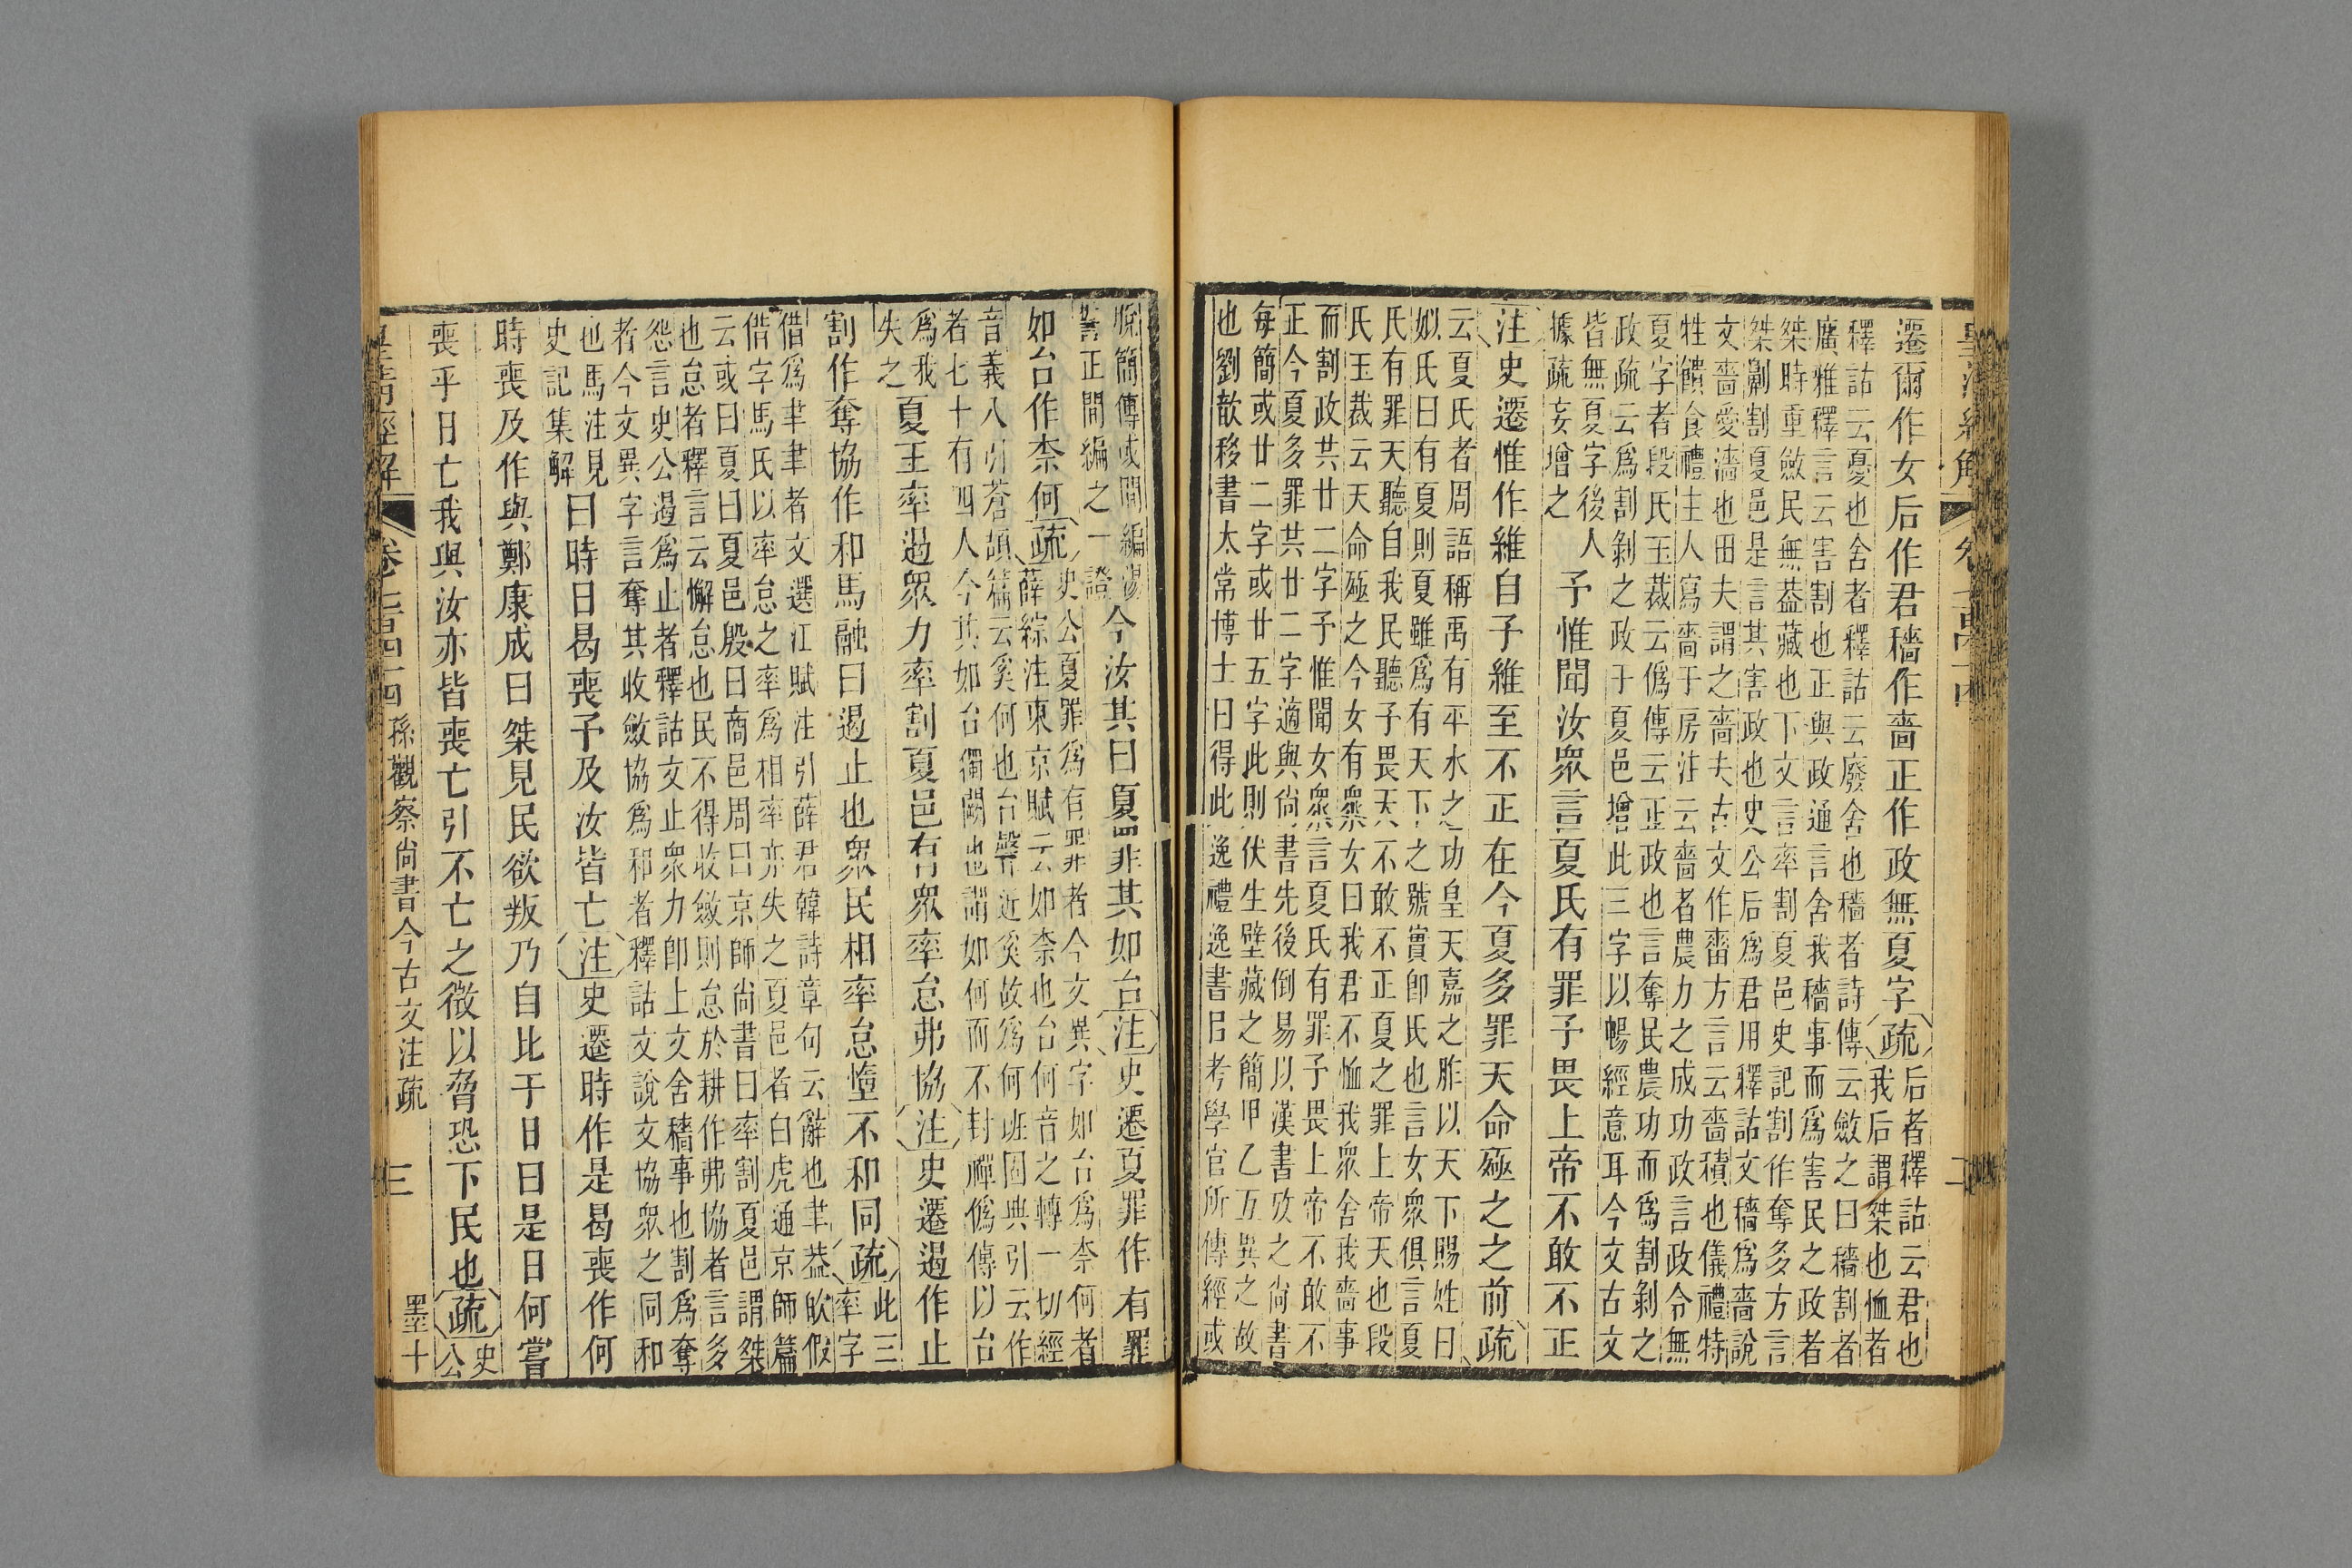 皇清經解 卷七百四十四 二
遷爾作女后作君穡作嗇正作政無夏字疏后者釋詁云君也
我后謂桀也恤者
釋詁云憂也舍者釋詁云廢舍也穡者詩傳云斂之曰穡割者
廣雅釋言云害割也正與政通言舍我穡事而爲害民之政者
桀時重斂民無葢藏也下文言率割夏邑史記割作奪多方言
桀劓割夏邑是言其害政也史公后爲君用釋詁文穡爲嗇說
文嗇愛濇也田夫謂之嗇夫古文作㐭方言云嗇積也儀禮特
牲饋食禮主人寫嗇于房注云嗇者農力之成功政言政令無
夏字者段氏玉裁云僞傳云正政也言奪民農功而爲割剝之
政疏云爲割剝之政于夏邑增此三字以暢經意耳今文古文
皆無夏字後人
據疏妄增之
予惟聞汝眾言夏氏有罪予畏上帝不敢不正
注史遷惟作維自予維至不正在今夏多罪天命殛之之前疏
云夏氏者周語稱禹有平水之功皇天嘉之胙以天下賜姓曰
姒氏曰有夏則夏雖爲有天下之號實卽氏也言女眾俱言夏
氏有罪天聽自我民聽予畏天不敢不正夏之罪上帝天也段
氏玉裁云天命殛之今女有眾女曰我君不恤我眾舍我嗇事
而割政共廿二字予惟聞女眾言夏氏有罪予畏上帝不敢不
正今夏多罪共廿二字適與尙書先後倒易以漢書攷之尙書
每簡或廿二字或廿五字此則伏生壁藏之簡甲乙互異之故
也劉歆移書太常博士曰得此逸禮逸書吕考學官所傳經或
脫簡傳或間編湯
誓正間編之一證
今汝其曰夏罪其如台注史遷夏罪作有罪
如台作柰何疏史公夏罪爲有罪者今文異字如台爲柰何者
薛綜注東京賦云如柰也台何音之轉一切經
音義八引蒼頡篇云奚何也台聲近奚故爲何班固典引云作
者七十有四人今其如台獨闕也謂如何而不封禪僞傳以台
爲我
失之
夏王率遏眾力率割夏邑有眾率怠弗協注史遷遏作止
割作奪協作和馬融曰遏止也眾民相率怠惰不和同疏此三
率字
借爲聿聿者文選江賦注引薛君韓詩章句云辭也聿葢欥假
借字馬氏以率怠之率爲相率亦失之夏邑者白虎通京師篇
云或曰夏曰夏邑殷曰商邑周曰京師尙書曰率割夏邑謂桀
也怠者釋言云懈怠也民不得收斂則怠於耕作弗協者言多
怨言史公遏爲止者釋詁文止眾力卽上文舍穡事也割爲奪
者今文異字言奪其收斂協爲和者釋詁文說文協眾之同和
也馬注見
史記集解
曰時日曷喪予及汝皆亡注史遷時作是曷喪作何
時喪及作與鄭康成曰桀見民欲叛乃自比于日曰是日何嘗
喪乎日亡我與汝亦皆喪亡引不亡之徵以脅恐下民也疏史
公
皇清經解 卷七百四十四 孫觀察尙書今古文注疏 三 墨十